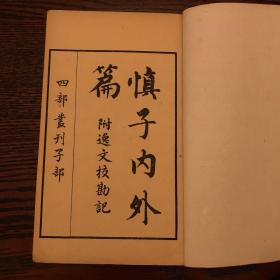 慎子內外
篇 附逸文校勘記
四部叢刊子部